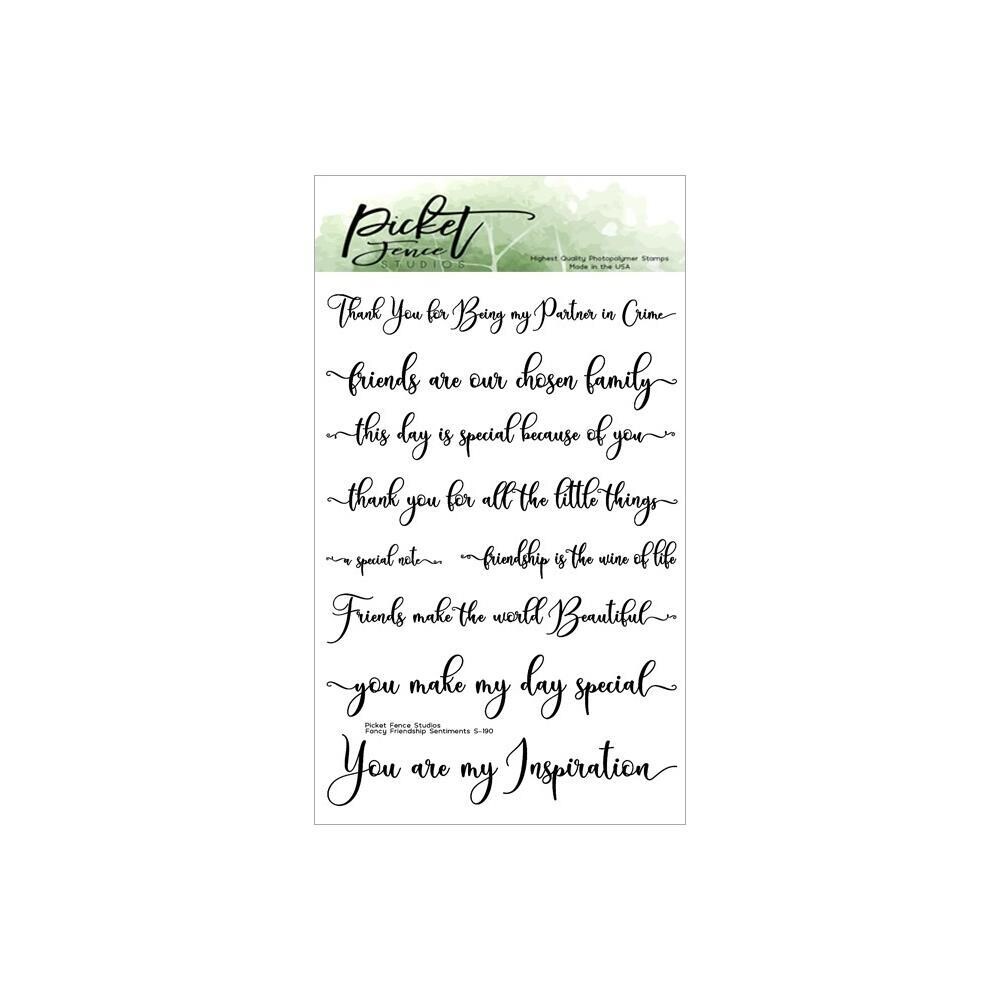 Picket
Fence
STUDIOS
Highest Quality Photopolymer Stamps
Made in the USA
Thank You for Being my Partner in Crime
friends are our chosen family
this day is special because of you
thank you for all the little things
a special note
friendship is the wine of life
Friends make the world Beautiful
you make my day special
Picket Fence Studios
Fancy Friendship Sentiments S-190
You are my Inspiration